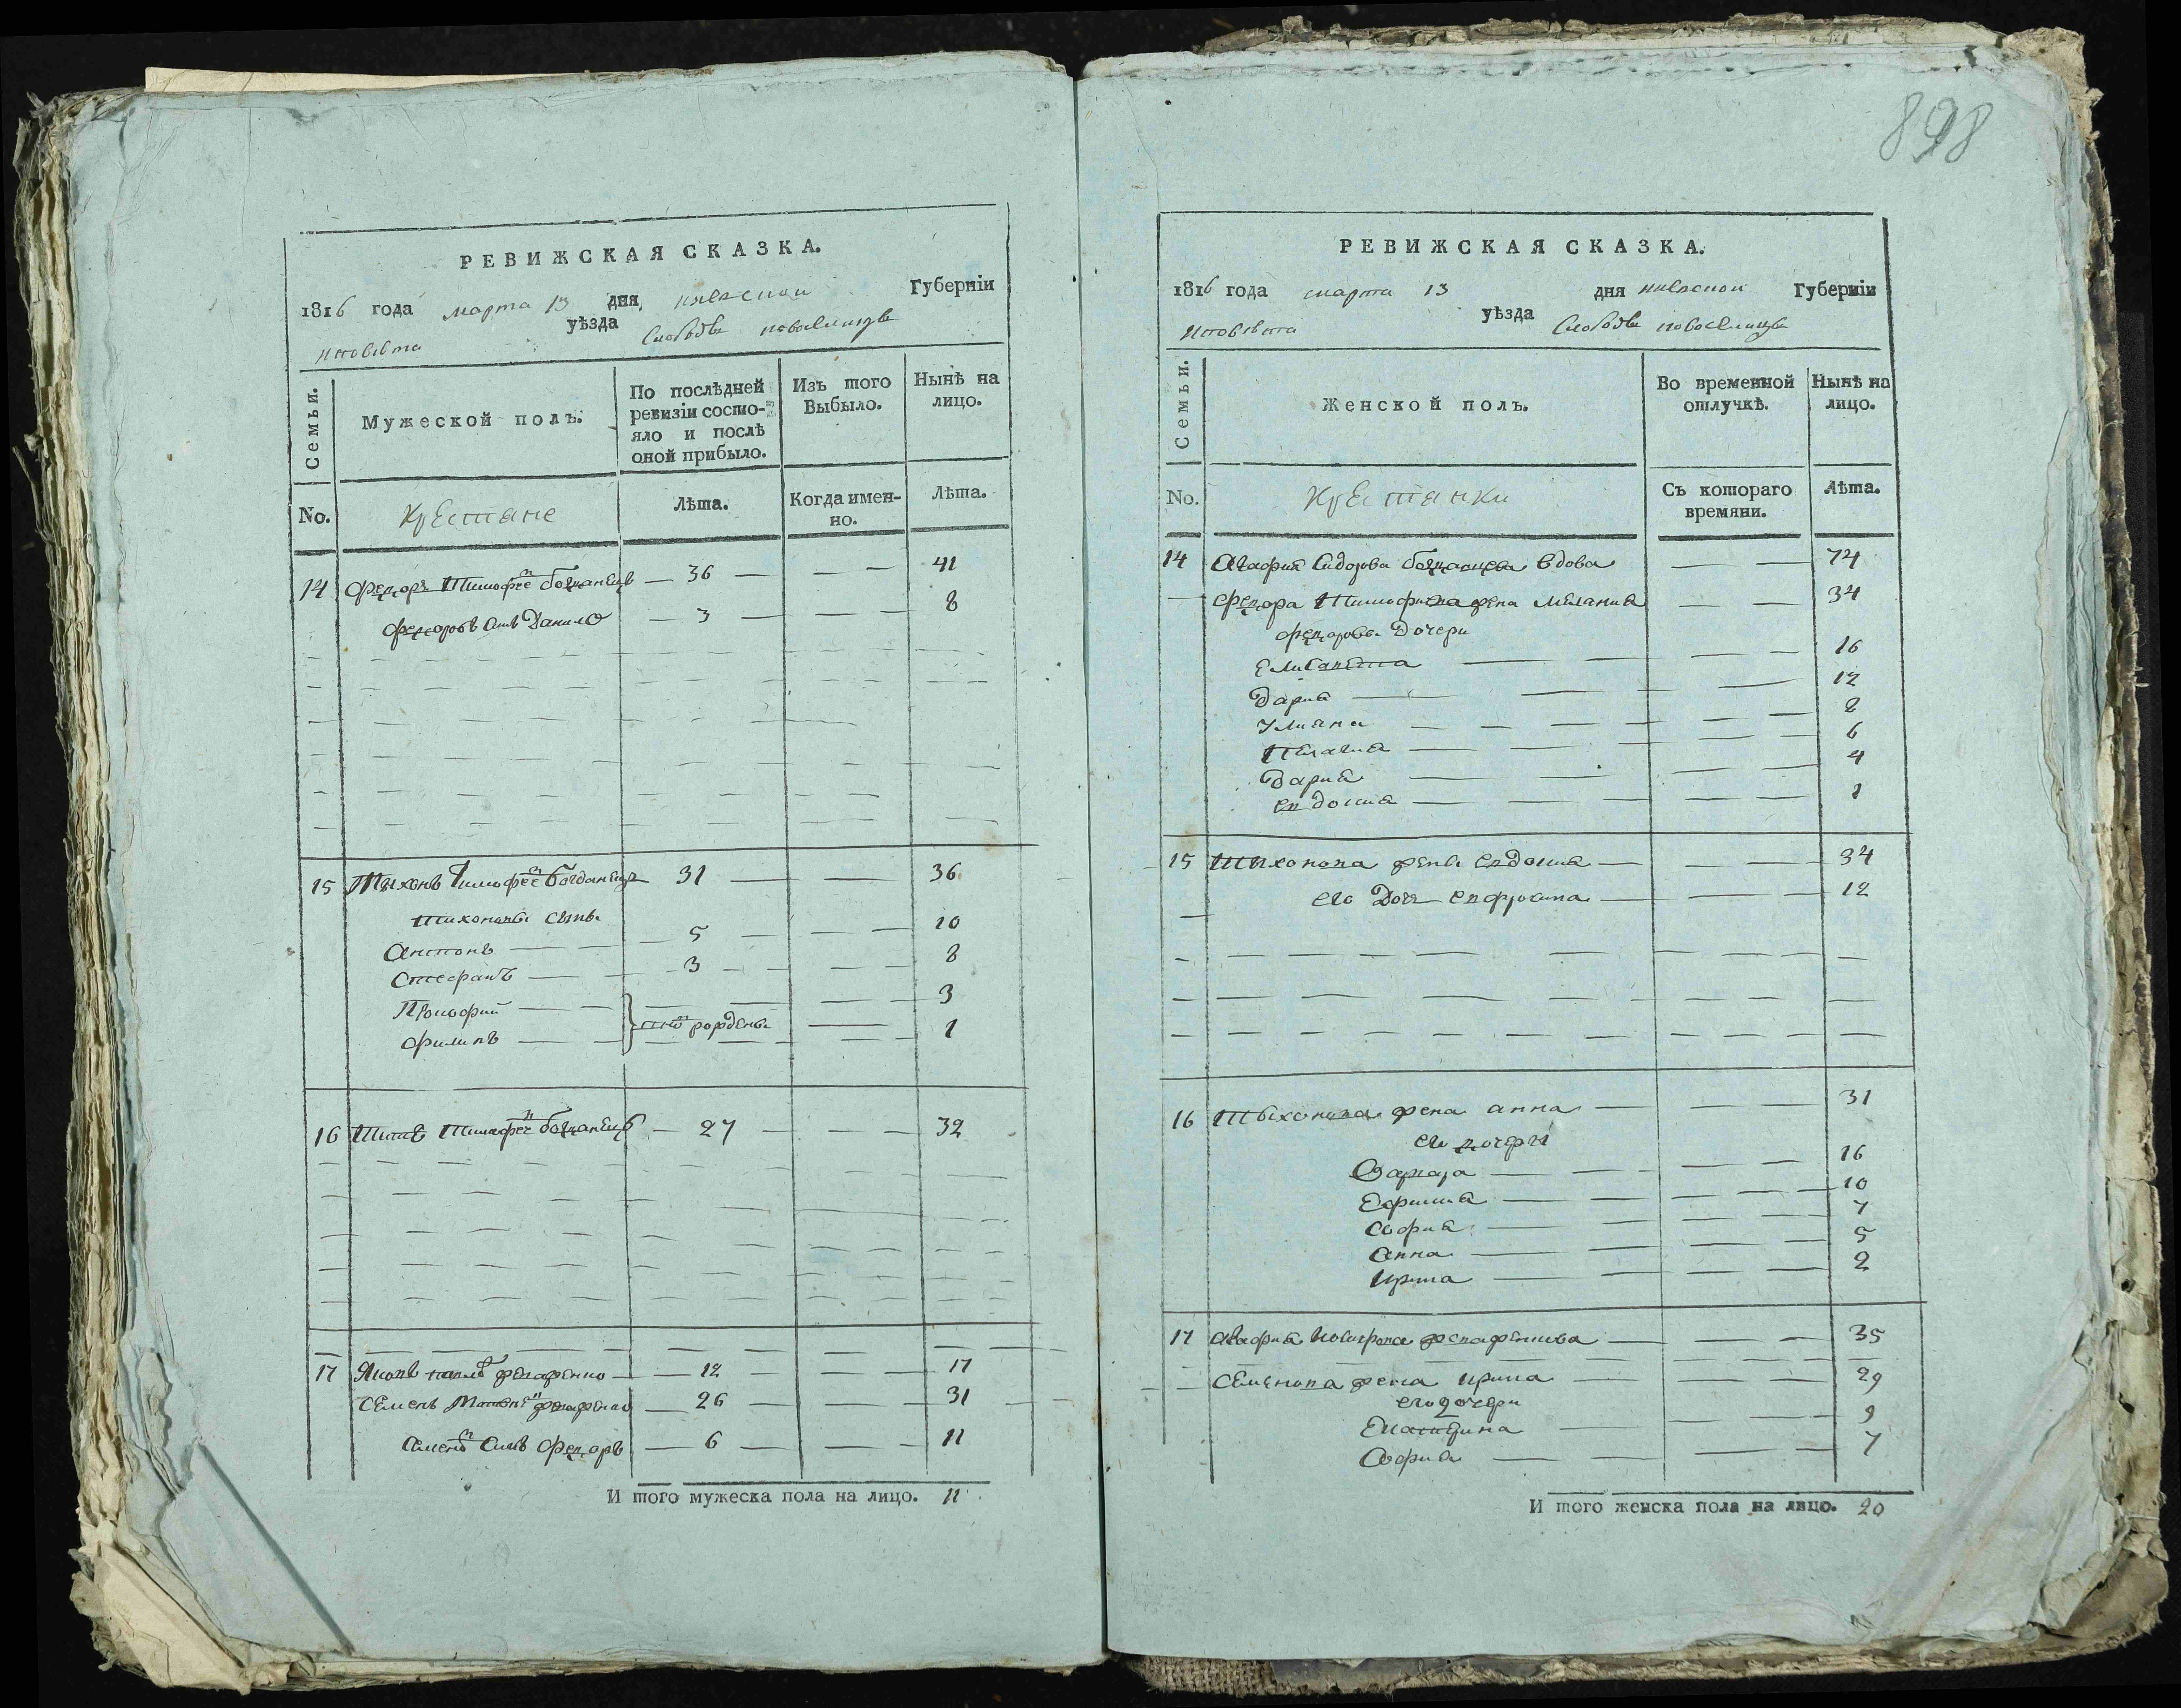 898
РЕВИЖСКАЯ СКАЗКА.
1816 года марта 13 дня киевской Губернїи
уѣзда Слободы
Семьи.
Мужеской полъ.
По послѣдней ревизїи состояло и послѣ оной прибыло.
Изъ того Выбыло.
Нынѣ на лицо.
No.
Крестяне
Лѣта.
Когда именно.
Лѣта.
14 Федоръ Тимофее Богданецъ — 36 — — — 41
Федоровъ Сынъ Данило — 3 — 8
15 Тыхонъ Тимофее Богданецъ 31 — — 36
Тихоновы Сыны
Антонъ — — 5 — — — 10
Стефанъ — — 3 — — — 8
Прокофий — — — — — 3
рождены
Филипъ — — — — — 1
16 Титъ Тимофее Богданецъ — 27 — — — 32
17 Яковъ — 12 — — — 17
Семенъ — 26 — — — 31
Семено Сынъ Федоръ — 6 — — — 11
И того мужеска пола на лицо. 11
РЕВИЖСКАЯ СКАЗКА.
1816 года марта 13 дня киевской Губернїи
уѣзда Слободы
Семьи.
Женской полъ.
Во временной отлучкѣ.
Нынѣ на лицо.
No.
Крестянки
Съ котораго времяни.
Лѣта.
14 Агафия Сидорова Богданцева вдова — — 74
Федора жена Мелания — — 34
Федоровы Дочери
Елисавета — — — — 16
Дария — — — — 12
Улияна — — — — 8
Пелагия — — — — 6
Дария — — — — 4
Евдокия — — — — 1
15 Тыхонова жена Евдокия — — — 34
его Дочь Евфросина — — — 12
16 Тыхонова жена анна — — — 31
его дочери
Варвара — — — — 16
Ефимия — — — — 10
Софиа — — — — 7
Анна — — — — 5
Ирина — — — — 2
17 Агафия — — — 35
Семенова жена Ирина — — — 29
его дочери
Екатерина — — 9
Софиа — — — — 7
И того женска пола на лицо. 20